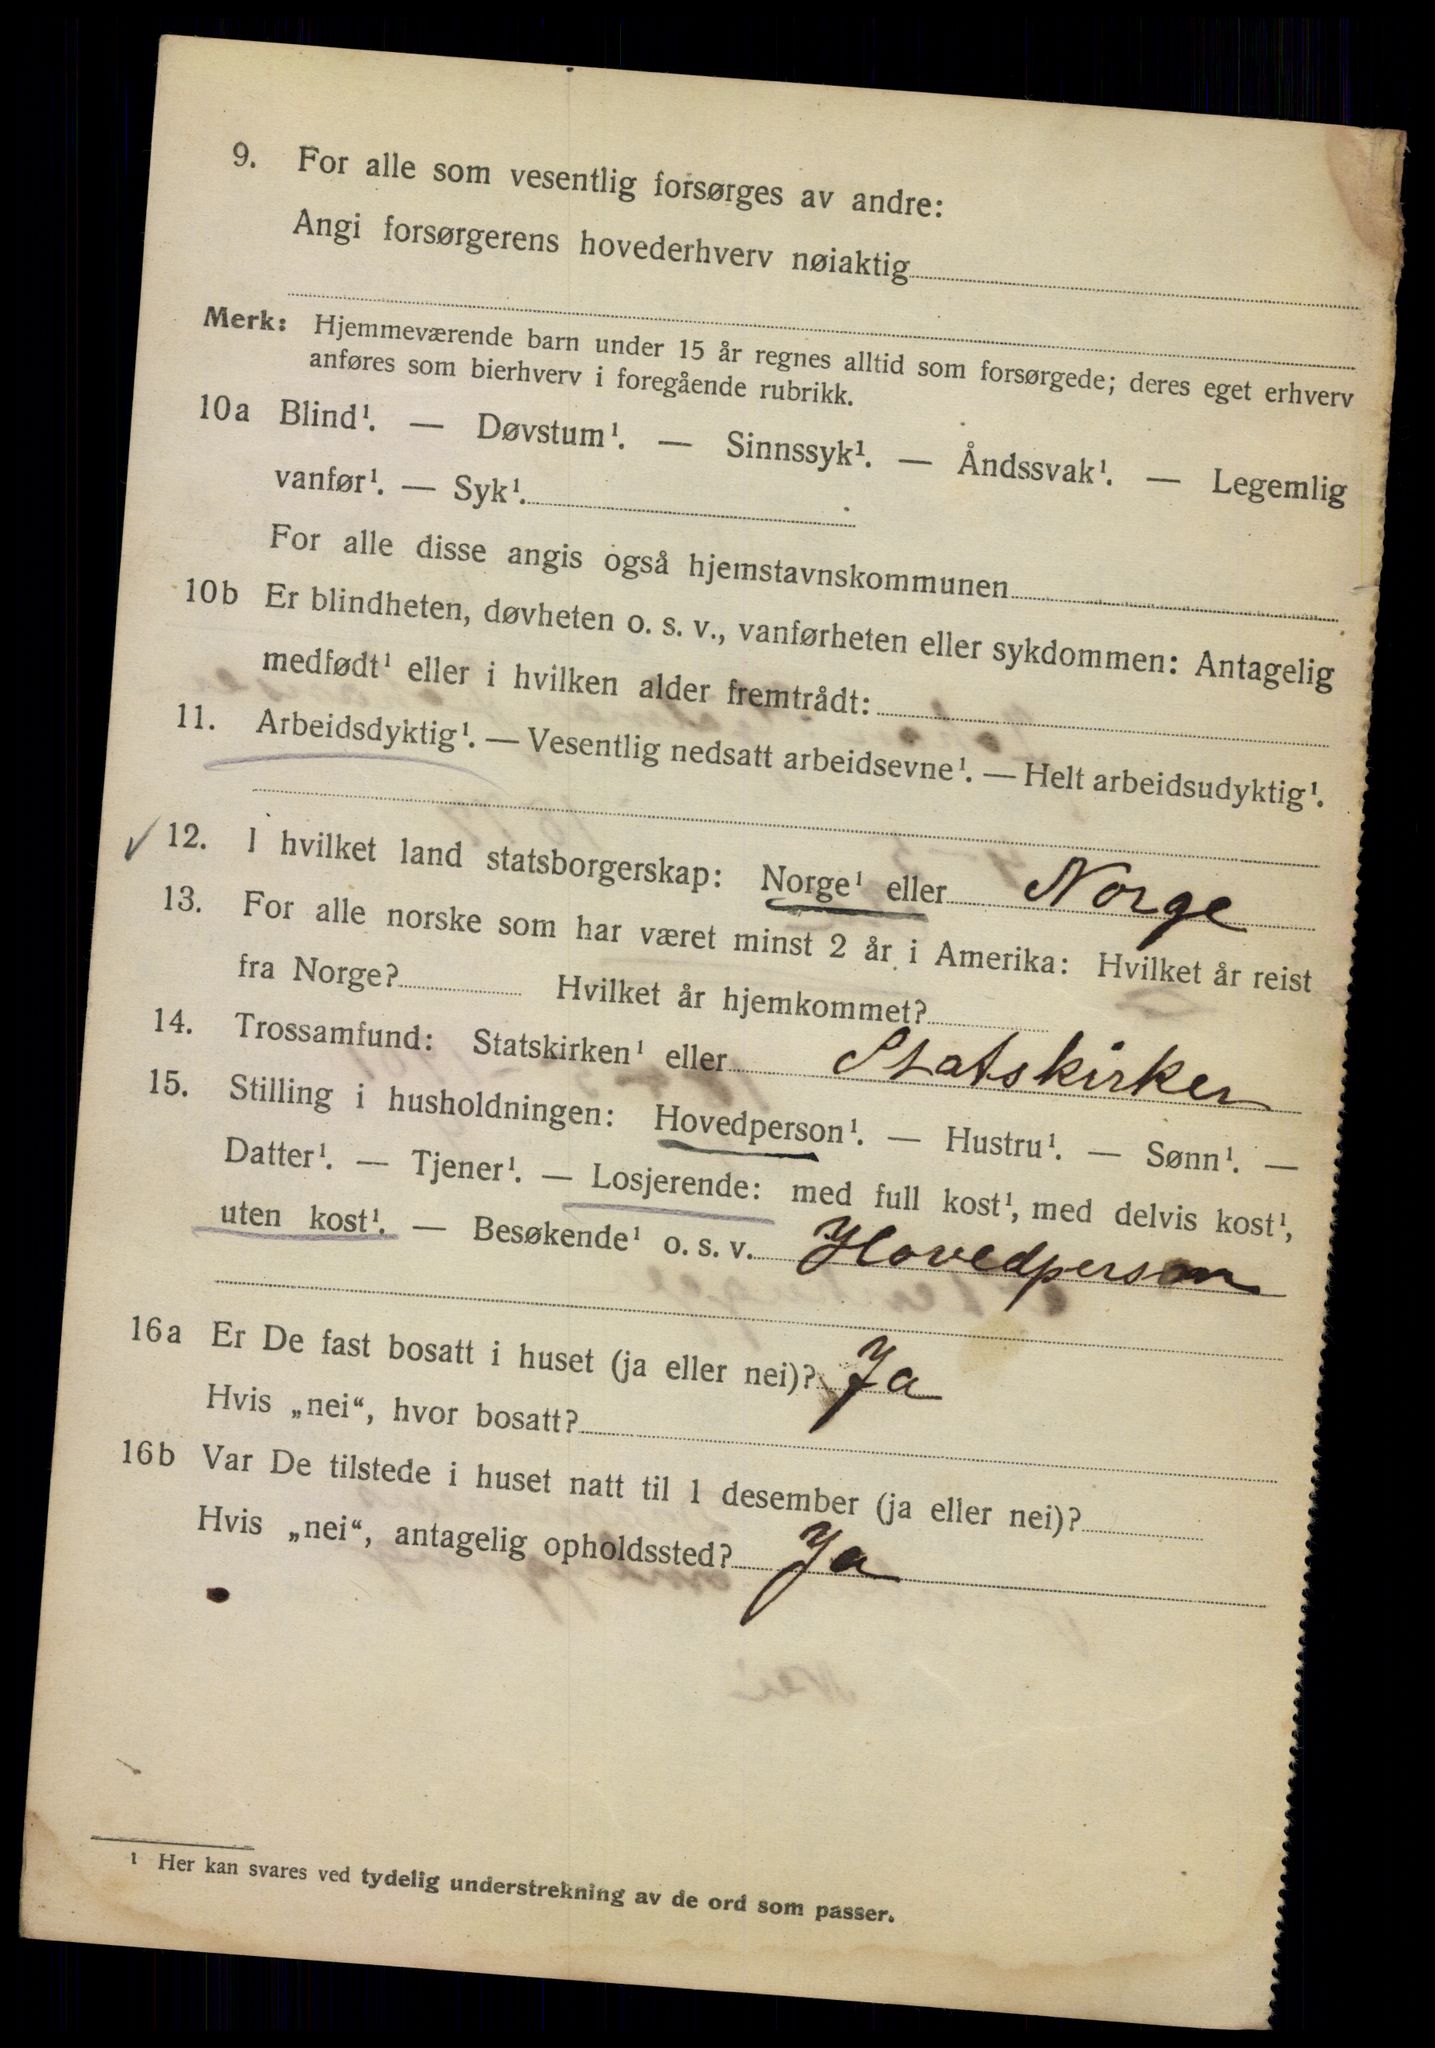 9. For alle som vesentlig forsørges av andre:
Angi forsørgerens hovederhverv nøiaktig
Merk: Hjemmeværende barn under 15 år regnes alltid som forsørgede; deres eget erhverv
anføres som bierhverv i foregående rubrikk.
10a Blind¹. — Døvstum¹. — Sinnssyk¹. — Åndssvak¹. — Legemlig
vanfør¹. — Syk¹.
For alle disse angis også hjemstavnskommunen
10b Er blindheten, døvheten o. s. v., vanførheten eller sykdommen: Antagelig
medfødt¹ eller i hvilken alder fremtrådt:
11. Arbeidsdyktig¹. — Vesentlig nedsatt arbeidsevne¹. — Helt arbeidsudyktig¹.
✓ 12. I hvilket land statsborgerskap: Norge¹ eller Norge
13. For alle norske som har været minst 2 år i Amerika: Hvilket år reist
fra Norge? Hvilket år hjemkommet?
14. Trossamfund: Statskirken¹ eller Statskirken
15. Stilling i husholdningen: Hovedperson¹. — Hustru¹. — Sønn¹. —
Datter¹. — Tjener¹. — Losjerende: med full kost¹, med delvis kost¹,
uten kost¹. — Besøkende¹ o. s. v. Hovedperson
16a Er De fast bosatt i huset (ja eller nei)? Ja
Hvis „nei“, hvor bosatt?
16b Var De tilstede i huset natt til 1 desember (ja eller nei)?
Hvis „nei“, antagelig opholdssted? Ja
¹ Her kan svares ved tydelig understrekning av de ord som passer.